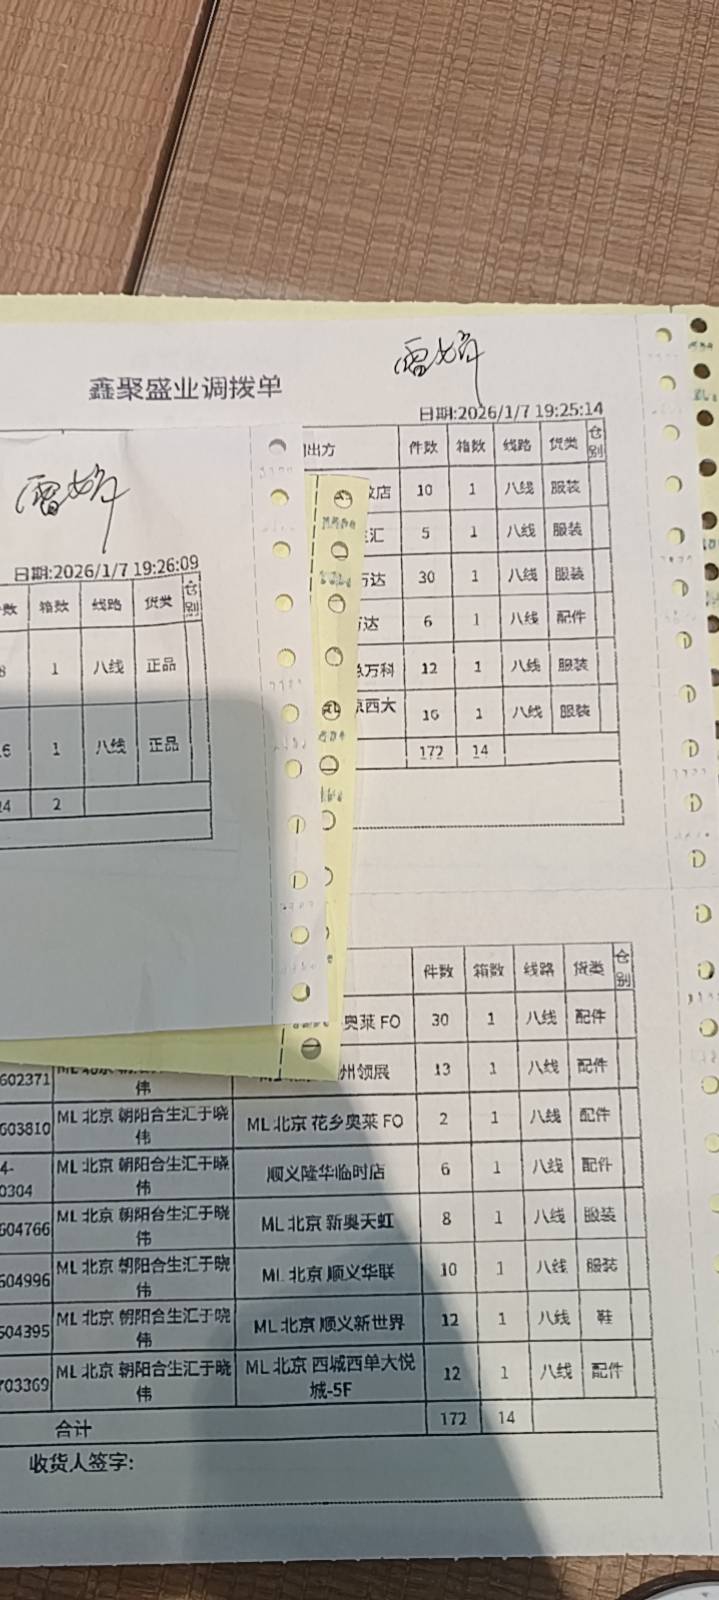 鑫聚盛业调拨单
日期:2026/1/7 19:25:14
出方 件数 箱数 线路 货类 仓别
店 10 1 八线 服装
汇 5 1 八线 服装
万达 30 1 八线 服装
达 6 1 八线 配件
万科 12 1 八线 服装
西大 16 1 八线 服装
172 14
日期:2026/1/7 19:26:09
数 箱数 线路 货类 仓别
8 1 八线 正品
6 1 八线 正品
24 2
件数 箱数 线路 货类 仓别
奥莱 FO 30 1 八线 配件
602371 ML 北京 朝阳合生汇于晓伟 州领展 13 1 八线 配件
603810 ML 北京 朝阳合生汇于晓伟 ML 北京 花乡奥莱 FO 2 1 八线 配件
4-0304 ML 北京 朝阳合生汇于晓伟 顺义隆华临时店 6 1 八线 配件
604766 ML 北京 朝阳合生汇于晓伟 ML 北京 新奥天虹 8 1 八线 服装
604996 ML 北京 朝阳合生汇于晓伟 ML 北京 顺义华联 10 1 八线 服装
604395 ML 北京 朝阳合生汇于晓伟 ML 北京 顺义新世界 12 1 八线 鞋
703369 ML 北京 朝阳合生汇于晓伟 ML 北京 西城西单大悦城-5F 12 1 八线 配件
合计 172 14
收货人签字: